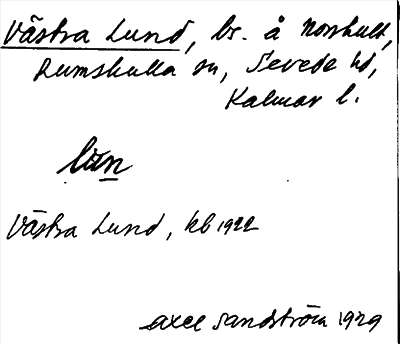 Västra Lund, br. å Norrhult,
Rumskulla sn, Sevede hd,
Kalmar l.
lun
Västra Lund, kb 1922
Axel Sandström 1929